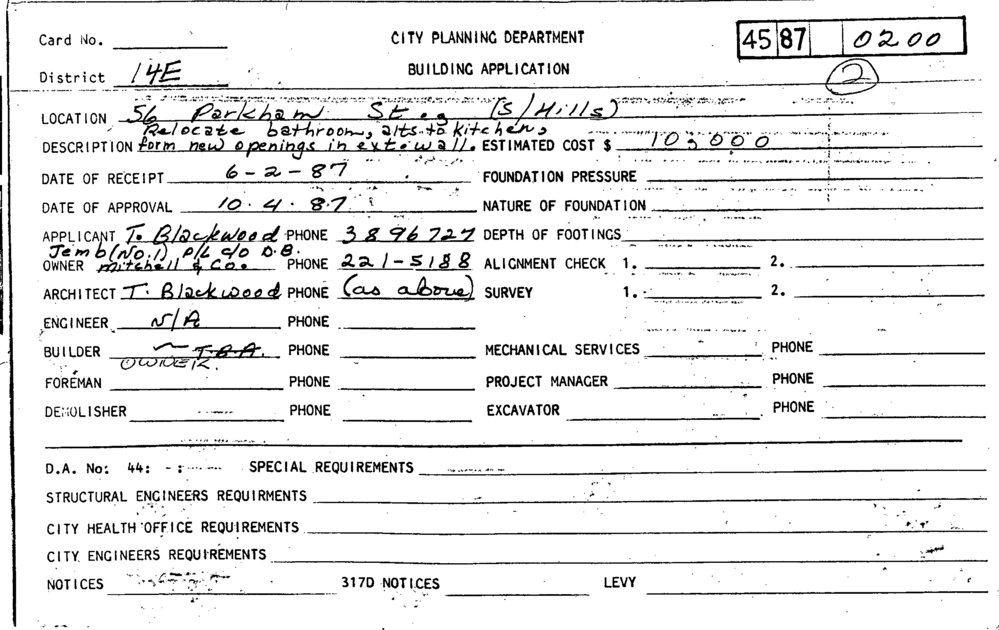 Card No. CITY PLANNING DEPARTMENT 45 87 0200
District 14E BUILDING APPLICATION 2
LOCATION 56 Parkham St., (S/Hills)
Relocate bathroom, alts. to kitchen,
DESCRIPTION form new openings in ext. wall. ESTIMATED COST $ 10,000
DATE OF RECEIPT 6-2-87 FOUNDATION PRESSURE
DATE OF APPROVAL 10.4.87 NATURE OF FOUNDATION
APPLICANT T. Blackwood PHONE 3896727 DEPTH OF FOOTINGS
Jemb (No.1) P/L c/o D.B.
OWNER Mitchell & Co. PHONE 221-5188 ALIGNMENT CHECK 1. 2.
ARCHITECT T. Blackwood PHONE (as above) SURVEY 1. 2.
ENGINEER N/A PHONE
BUILDER T.B.A. PHONE MECHANICAL SERVICES PHONE
OWNER.
FOREMAN PHONE PROJECT MANAGER PHONE
DEMOLISHER PHONE EXCAVATOR PHONE
D.A. No: 44: - : SPECIAL REQUIREMENTS
STRUCTURAL ENGINEERS REQUIRMENTS
CITY HEALTH OFFICE REQUIREMENTS
CITY ENGINEERS REQUIREMENTS
NOTICES 317D NOTICES LEVY